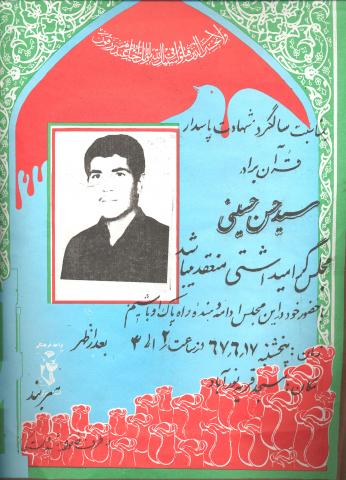 ولا تحسبن الذین قتلوا فی سبیل الله امواتا بل احیاء عند ربهم یرزقون
بمناسبت سالگرد شهادت پاسدار
قرآن برادر
سید حسن حسینی
مجلس گرامیداشتی منعقد میباشد
با حضور خود در این مجلس ادامه دهنده راه پاک او باشیم
زمان: پنجشنبه ۶۷،۶،۱۷ از ساعت ۲ الی ۴ بعد از ظهر
مکان: مسجد قریه
واحد فرهنگی
سربند
از طرف